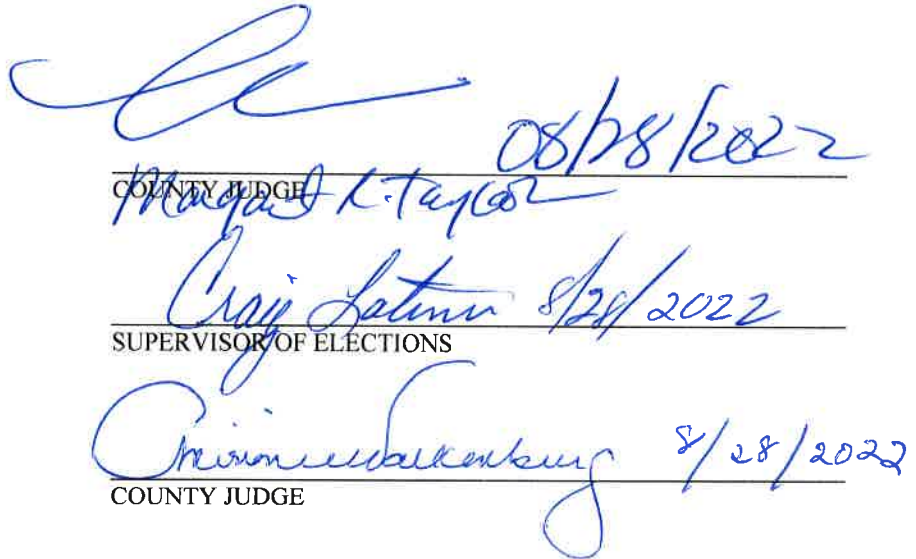 08/28/2022
COUNTY JUDGE
Margaret R. Taylor
Craig Latimer 8/28/2022
SUPERVISOR OF ELECTIONS
Miriam Valkenburg 8/28/2022
COUNTY JUDGE